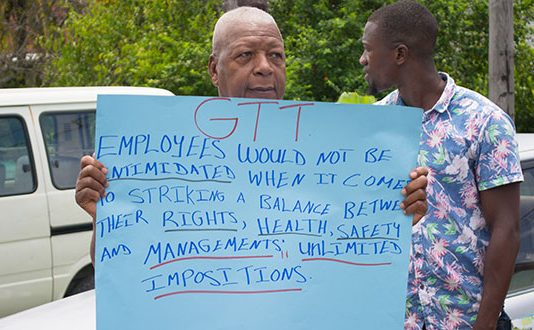 GTT.
EMPLOYEES WOULD NOT BE
INTIMIDATED WHEN IT COME
TO STRIKING A BALANCE BETWE
THEIR RIGHTS, HEALTH, SAFETY
AND MANAGEMENTS; UNLIMITED
IMPOSITIONS.